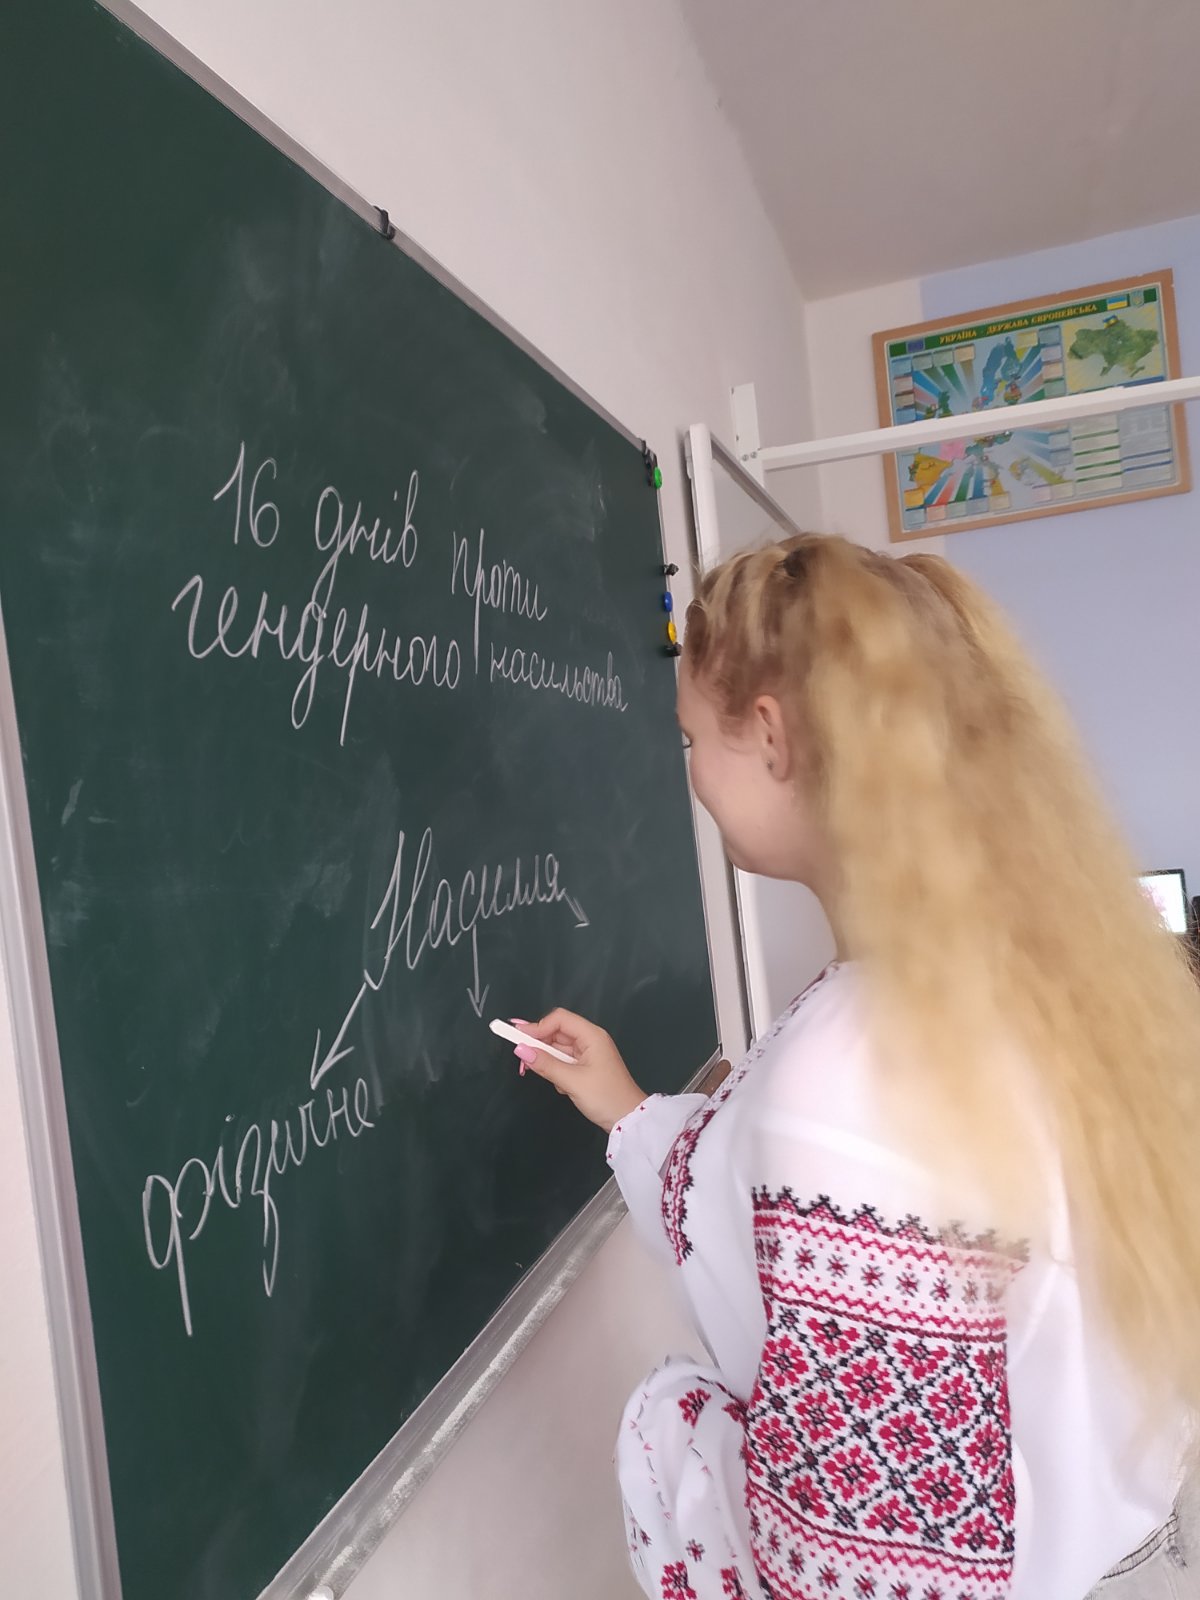 16 днів проти
гендерного насильства
Насилля
фізичне
УКРАЇНА - ДЕРЖАВА ЄВРОПЕЙСЬКА